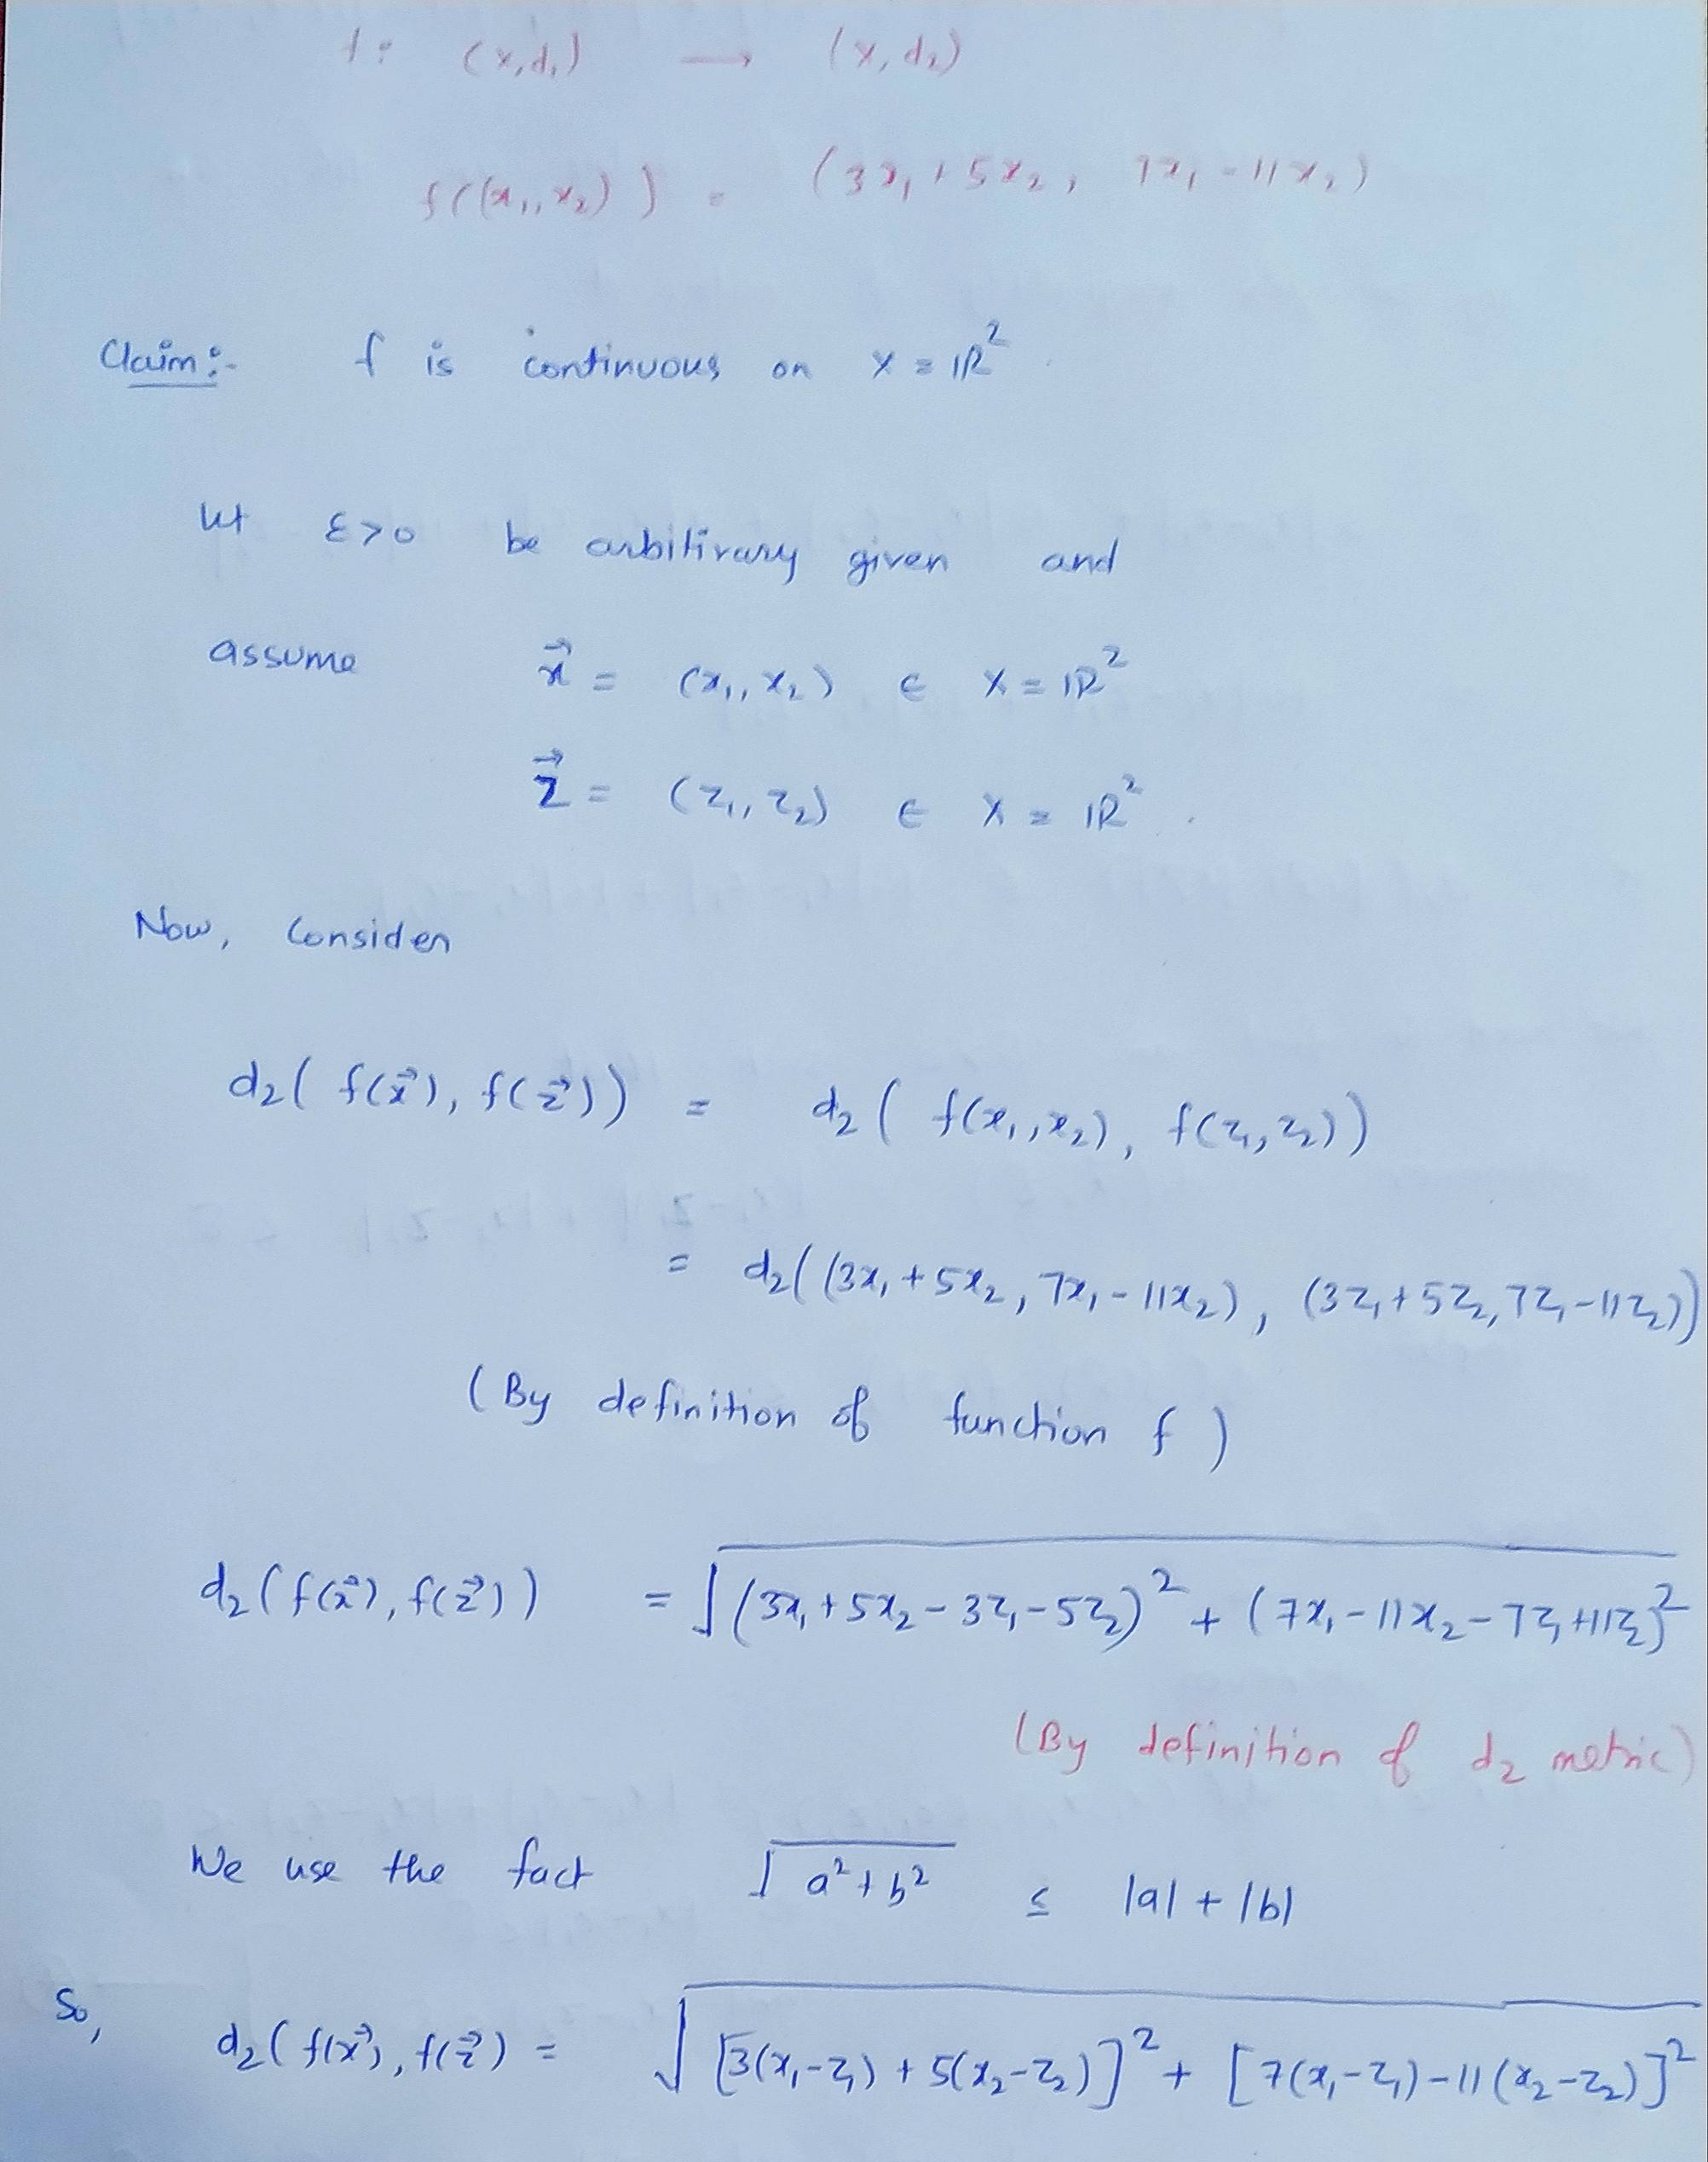 f: (X,d₁) → (X,d₂)
f((x₁,x₂)) = (3x₁+5x₂, 7x₁-11x₂)
Claim:- f is continuous on X = ℝ².
let ε>0 be arbitirary given and
assume x⃗ = (x₁,x₂) ∈ X=ℝ²
z⃗ = (z₁,z₂) ∈ X = ℝ².
Now, Consider
d₂( f(x⃗), f(z⃗)) = d₂( f(x₁,x₂), f(z₁,z₂))
= d₂((3x₁+5x₂, 7x₁-11x₂), (3z₁+5z₂, 7z₁-11z₂))
(By definition of function f)
d₂(f(x⃗), f(z⃗)) = √((3x₁+5x₂-3z₁-5z₂)² + (7x₁-11x₂-7z₁+11z₂)²)
(By definition of d₂ metric)
We use the fact √(a²+b²) ≤ |a|+|b|
So,
d₂(f(x⃗), f(z⃗) = √([3(x₁-z₁)+5(x₂-z₂)]² + [7(x₁-z₁)-11(x₂-z₂)]²)